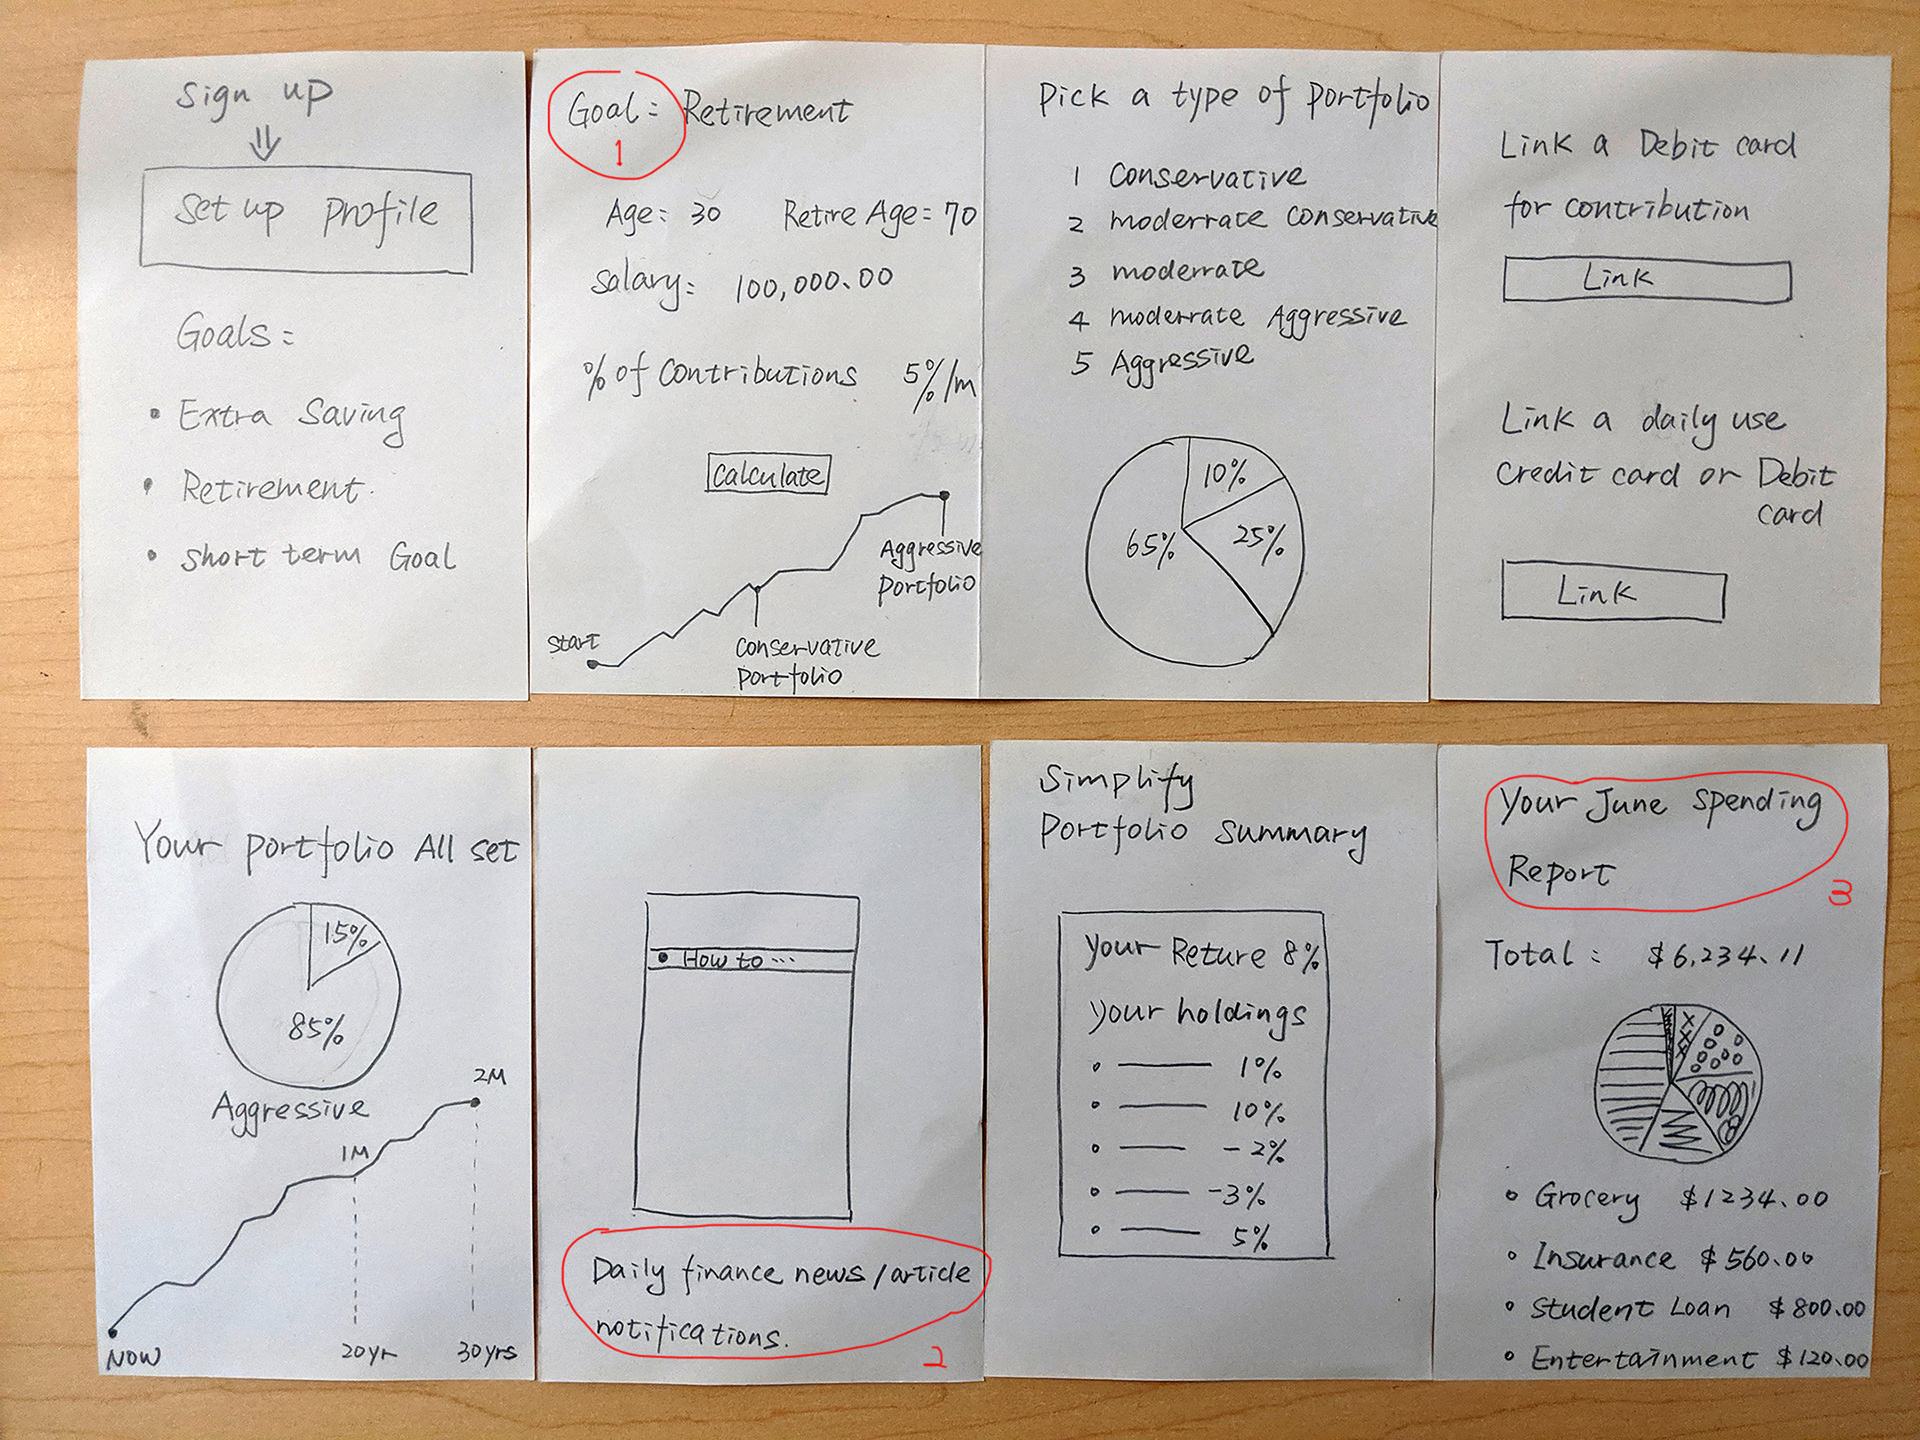 Sign up
Set up profile
Goals:
• Extra Saving
• Retirement.
• short term Goal
Goal: Retirement
1
Age: 30 Retire Age: 70
Salary: 100,000.00
% of Contributions 5%/m
Calculate
Aggressive
Portfolio
Start
Conservative
Portfolio
Pick a type of Portfolio
1 Conservative
2 moderrate Conservative
3 moderrate
4 moderrate Aggressive
5 Aggressive
10%
65% 25%
Link a Debit card
for contribution
Link
Link a daily use
Credit card or Debit
card
Link
Your portfolio All set
15%
85%
Aggressive
2M
1M
NOW 20yr 30yrs
• How to ...
Daily finance news/article
notifications.
2
Simplify
Portfolio summary
Your Reture 8%
Your holdings
1%
10%
-2%
-3%
5%
Your June Spending
Report
3
Total: $6,234.11
• Grocery $1234.00
• Insurance $560.00
• Student Loan $800.00
• Entertainment $120.00